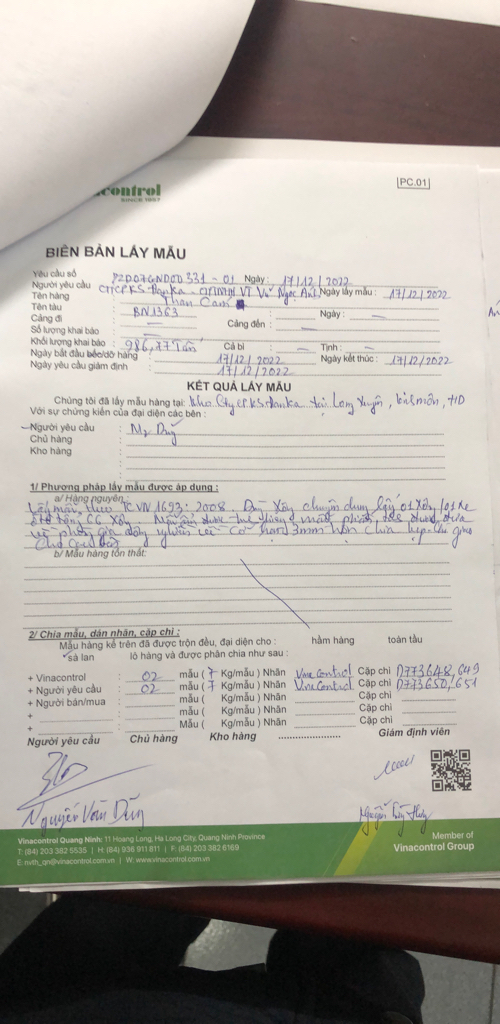 control
SINCE 1957
PC.01
BIÊN BẢN LẤY MẪU
Yêu cầu số : 22D07GND0D331-01 Ngày : 17/12/2022
Người yêu cầu : CTCPKS Hanka - Vũ Ngọc Anh Ngày lấy mẫu : 17/12/2022
Tên hàng : Than Cám
Tên tàu : BN1363 Ngày : —
Cảng đi : — Cảng đến : —
Số lượng khai báo : —
Khối lượng khai báo : 986,77 Tấn Cả bì : — Tịnh : —
Ngày bắt đầu bốc/dỡ hàng : 17/12/2022 Ngày kết thúc : 17/12/2022
Ngày yêu cầu giám định : 17/12/2022
KẾT QUẢ LẤY MẪU
Chúng tôi đã lấy mẫu hàng tại: Kho Cty CPKS Hanka tại Long Xuyên, Kinh môn, HD
Với sự chứng kiến của đại diện các bên :
Người yêu cầu : Mr Dũng
Chủ hàng :
Kho hàng :
1/ Phương pháp lấy mẫu được áp dụng :
a/ Hàng nguyên :
Lấy mẫu theo TCVN 1693:2008. Dùng Xẻng chuyên dụng lấy 01 Xẻng/01 xe
ô tô tổng 66 Xẻng. Mẫu
về phòng gia công nghiền về cỡ hạt 3mm trộn chia
b/ Mẫu hàng tổn thất:
2/ Chia mẫu, dán nhãn, cặp chì :
Mẫu hàng kể trên đã được trộn đều, đại diện cho : hầm hàng toàn tầu
sà lan lô hàng và được phân chia như sau :
+ Vinacontrol : 02 mẫu ( 7 Kg/mẫu ) Nhãn Vinacontrol Cặp chì D773648,649
+ Người yêu cầu : 02 mẫu ( 7 Kg/mẫu ) Nhãn Vinacontrol Cặp chì D773650,651
+ Người bán/mua : mẫu ( Kg/mẫu ) Nhãn Cặp chì
+ : Mẫu ( Kg/mẫu ) Nhãn Cặp chì
+ : Mẫu ( Kg/mẫu ) Nhãn Cặp chì
Người yêu cầu Chủ hàng Kho hàng ........................ Giám định viên
Nguyễn Văn Dũng Nguyễn
Vinacontrol Quang Ninh: 11 Hoang Long, Ha Long City, Quang Ninh Province
T: (84) 203 382 5535 | H: (84) 936 911 811 | F: (84) 203 382 6169
E: nvth_qn@vinacontrol.com.vn | W: www.vinacontrol.com.vn
Member of
Vinacontrol Group